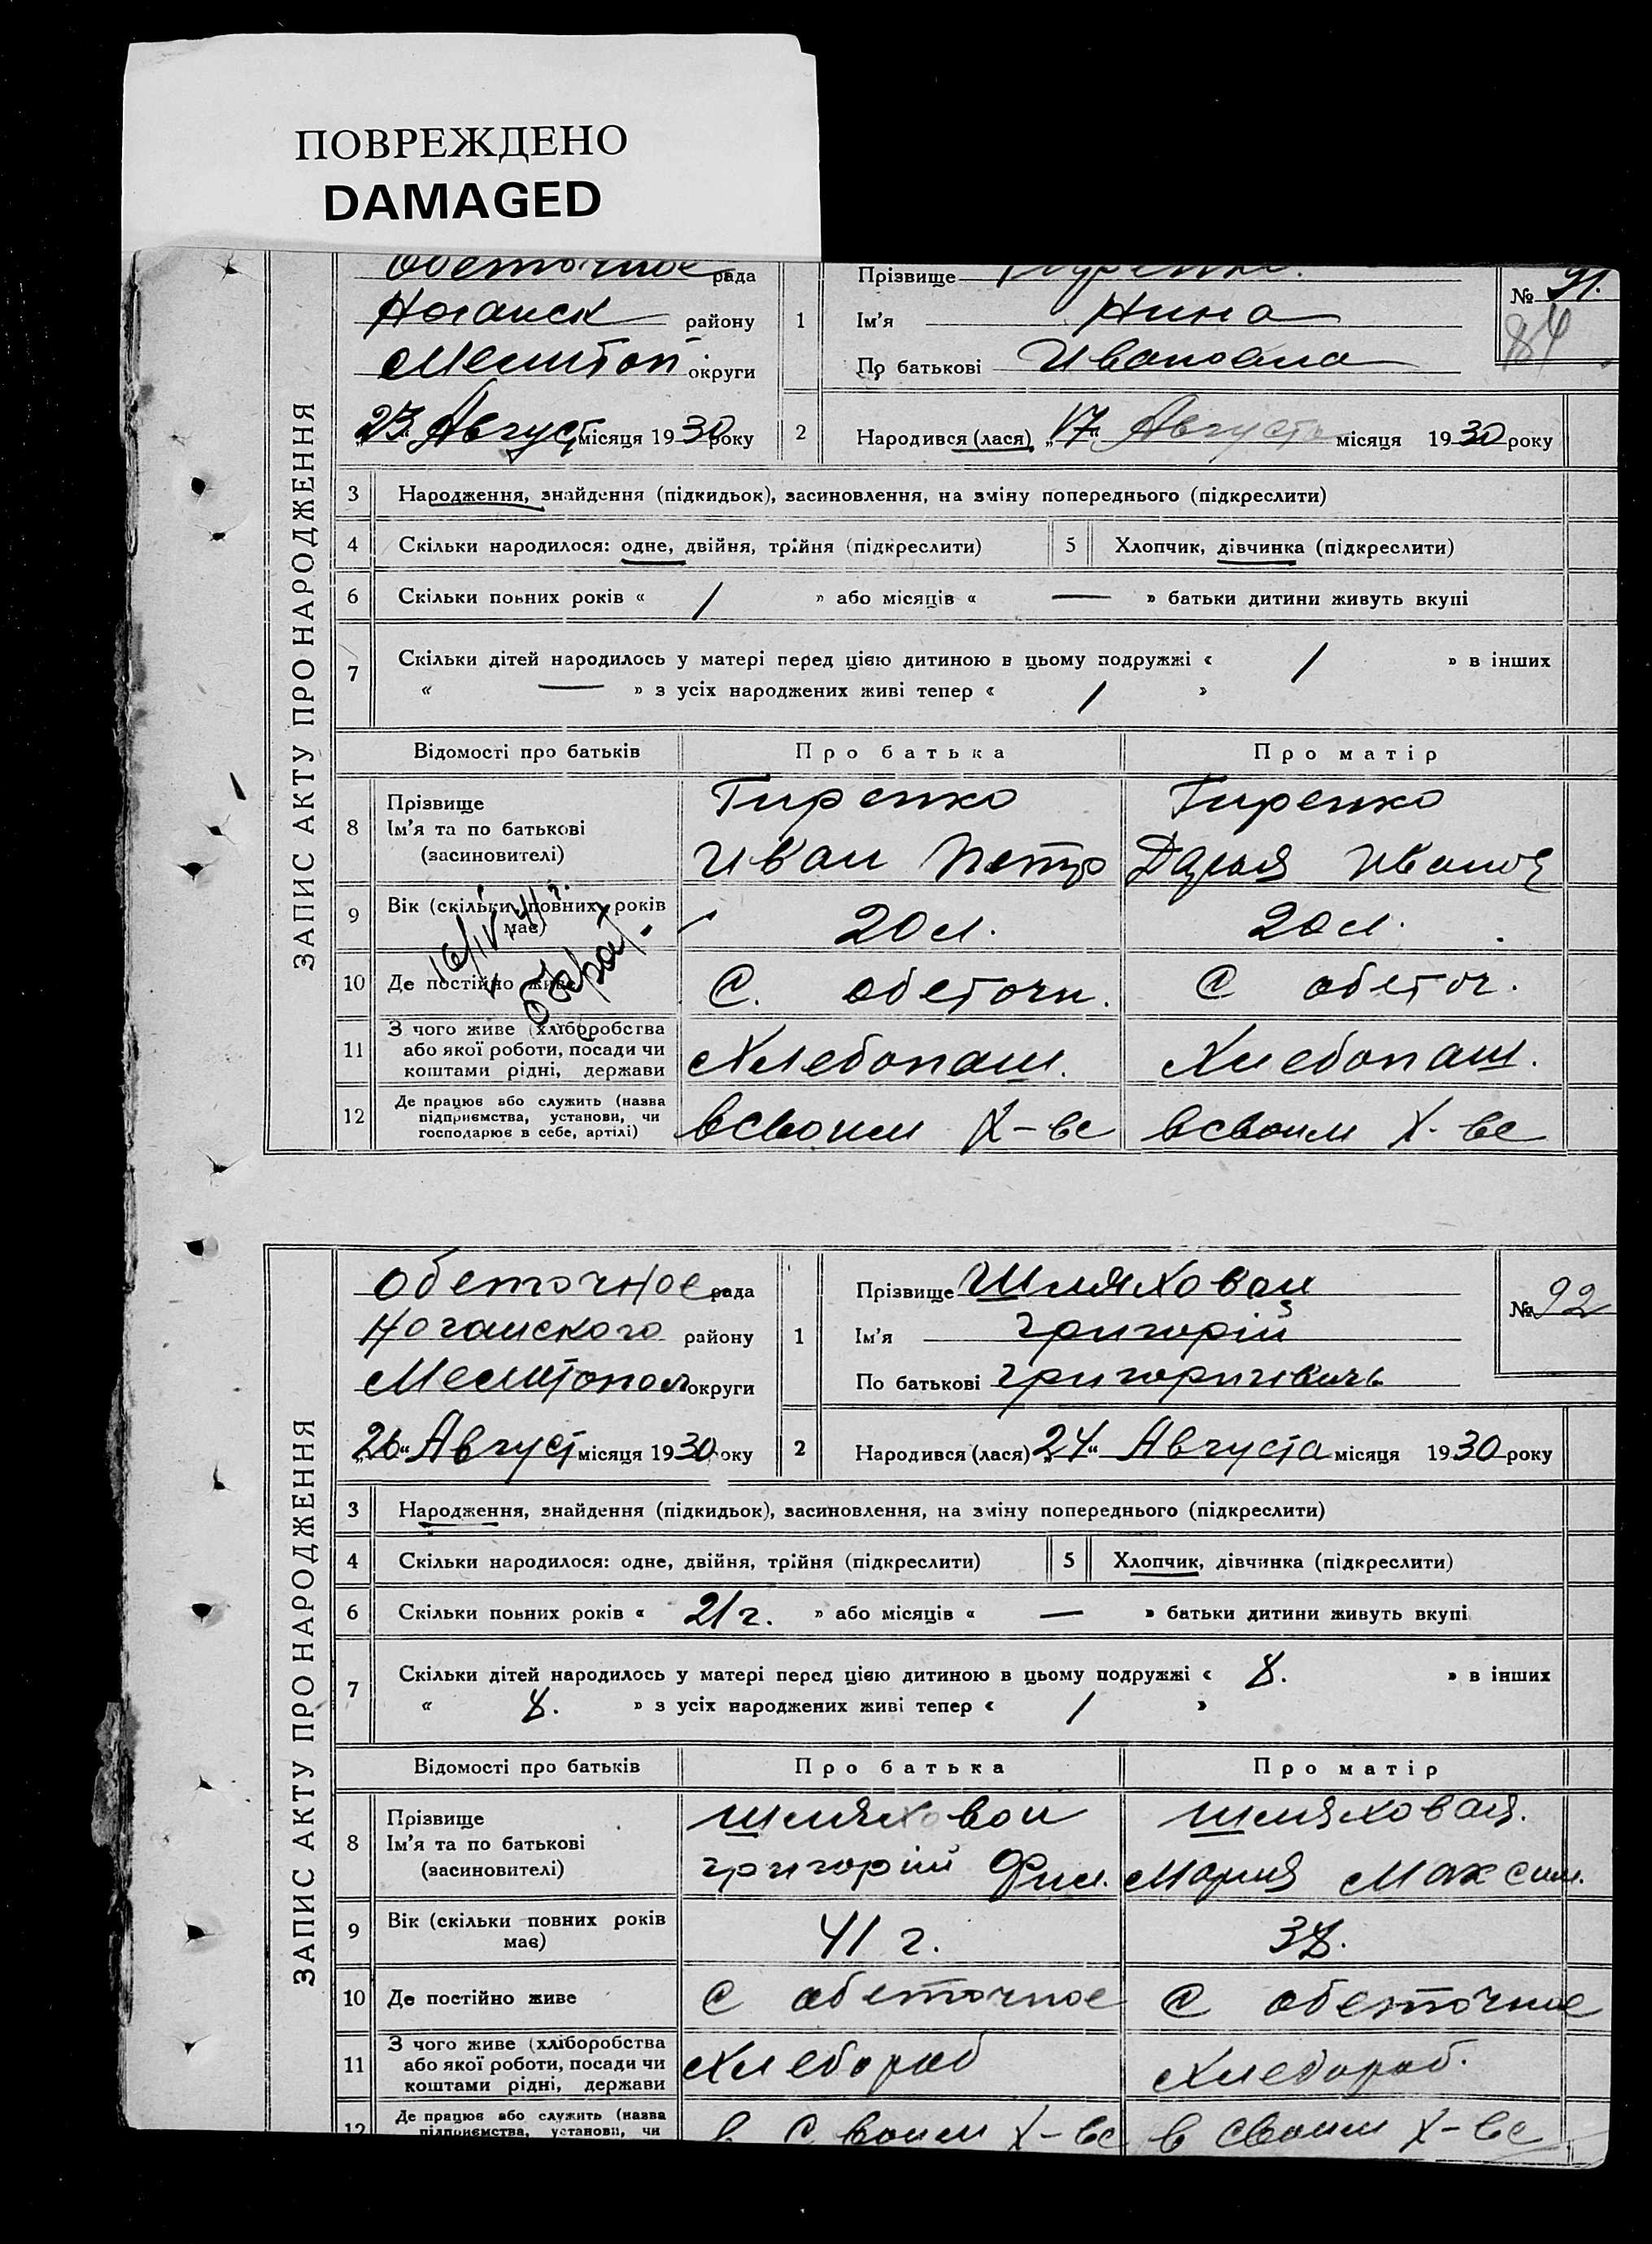 ПОВРЕЖДЕНО
DAMAGED
ЗАПИС АКТУ ПРО НАРОДЖЕННЯ
Обеточное рада
Ногайск району
Мелитоп. округи
„23“ Август місяця 1930 року
1
Прізвище
Ім'я Нина
По батькові Ивановна
№ 91.
84
2 Народився (лася) „17“ Августа місяця 1930 року
3 Народження, знайдення (підкидьок), засиновлення, на зміну попереднього (підкреслити)
4 Скільки народилося: одне, двійня, трійня (підкреслити) 5 Хлопчик, дівчинка (підкреслити)
6 Скільки повних років « 1 » або місяців « — » батьки дитини живуть вкупі
7 Скільки дітей народилось у матері перед цією дитиною в цьому подружжі « 1 » в інших
« — » з усіх народжених живі тепер « 1 »
Відомості про батьків Про батька Про матір
8 Прізвище Гиренко Гиренко
Ім'я та по батькові
(засиновителі) Иван Петр Дарья Иванов
9 Вік (скільки повних років має) 20 л. 20 л.
16/IV
10 Де постійно живе С. обеточн. С обеточ.
11 З чого живе (хліборобства
або якої роботи, посади чи
коштами рідні, держави Хлебопаш. Хлебопаш.
12 Де працює або служить (назва
підприємства, установи, чи
господарює в себе, артілі) в своим х-ве в своим х-ве
ЗАПИС АКТУ ПРО НАРОДЖЕННЯ
Обеточное рада
Ногайского району
Мелитопол округи
„26“ Август місяця 1930 року
1
Прізвище Шляховой
Ім'я Григорій
По батькові Григоригивичь
№ 92
2 Народився (лася) „24“ Августа місяця 1930 року
3 Народження, знайдення (підкидьок), засиновлення, на зміну попереднього (підкреслити)
4 Скільки народилося: одне, двійня, трійня (підкреслити) 5 Хлопчик, дівчинка (підкреслити)
6 Скільки повних років « 21 г. » або місяців « — » батьки дитини живуть вкупі
7 Скільки дітей народилось у матері перед цією дитиною в цьому подружжі « 8. » в інших
« 8. » з усіх народжених живі тепер « 1 »
Відомості про батьків Про батька Про матір
8 Прізвище Шляховой Шляховая.
Ім'я та по батькові
(засиновителі) Григорій Фил. Мария Максим.
9 Вік (скільки повних років має) 41 г. 38.
10 Де постійно живе С обеточное С обеточное
11 З чого живе (хліборобства
або якої роботи, посади чи
коштами рідні, держави Хлебороб Хлебороб.
12 Де працює або служить (назва
підприємства, установи, чи в своим х-ве в своим х-ве